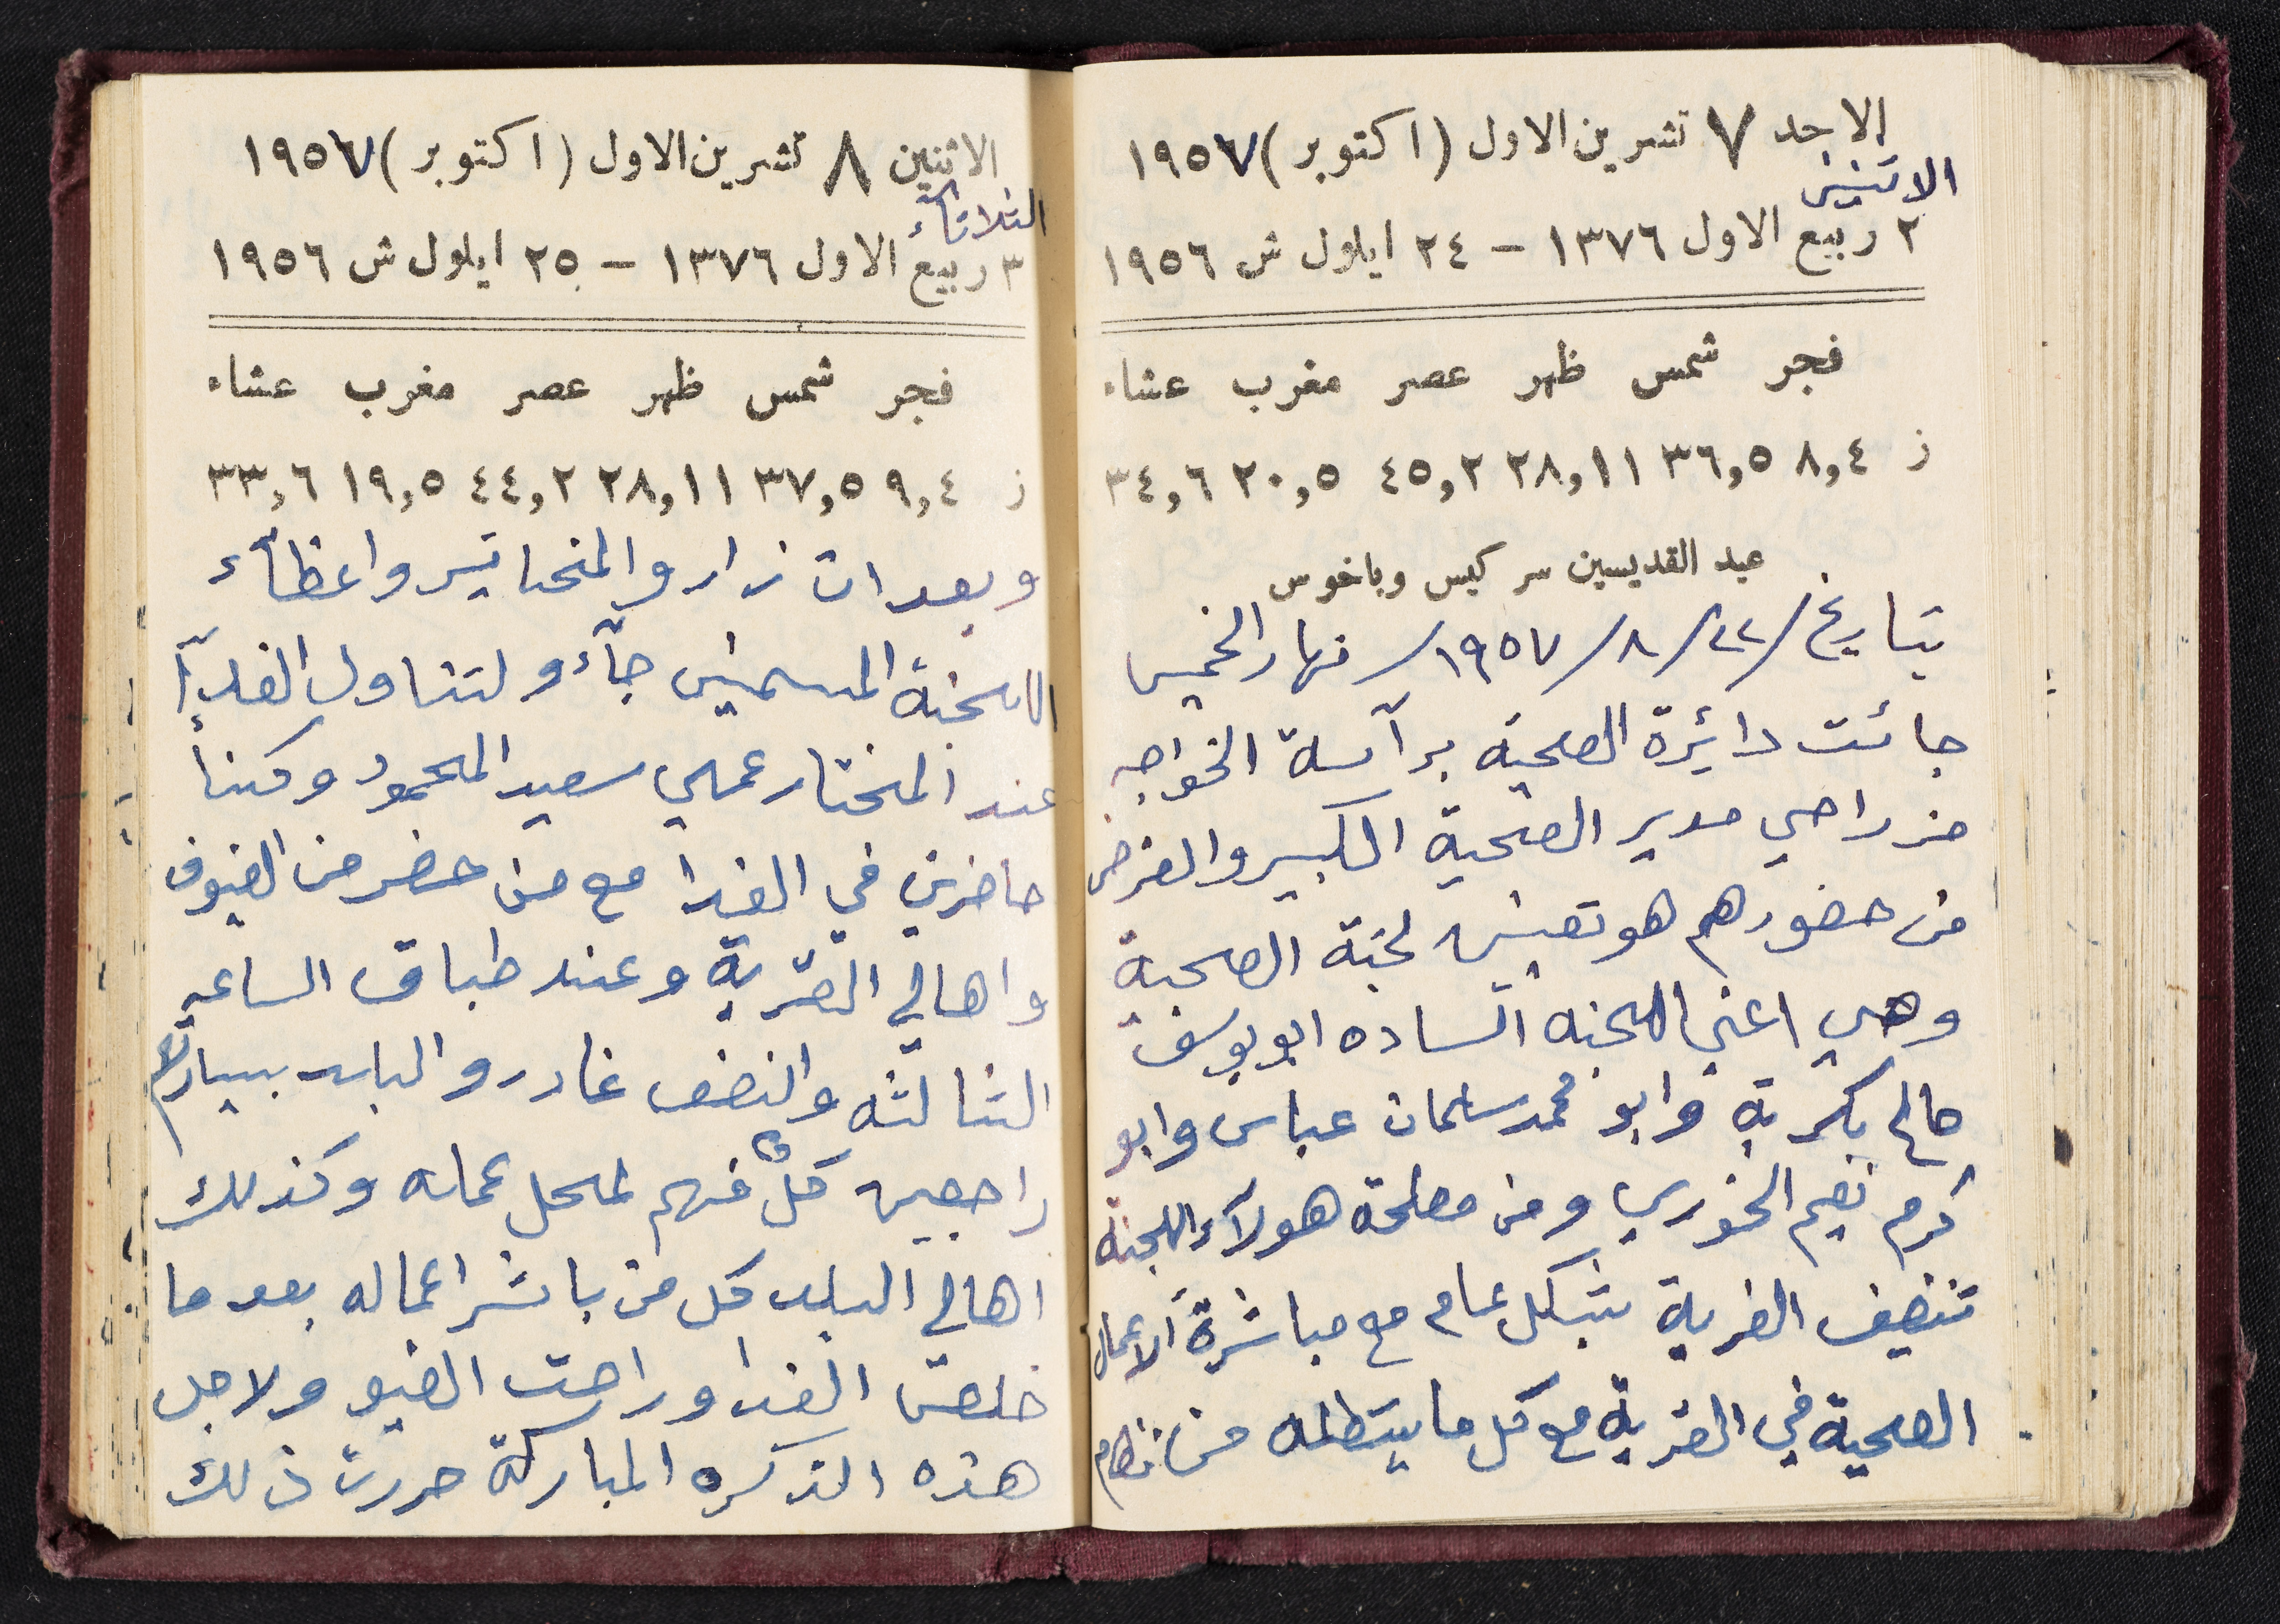 الاحد ٧ تشرين الاول (اكتوبر) ١٩٥٧
الاثنين
٢ ربيع الاول ١٣٧٦ – ٢٤ ايلول ش ١٩٥٦
فجر شمس ظهر عصر مغرب عشاء
ز ٨,٤ ٣٦,٥ ٢٨,١١ ٤٥,٢ ٢٠,٥ ٣٤,٦
عيد القديسين سركيس وباخوس
بتاريخ /٢٢/ ٨/ ١٩٥٧/ نهار الخميس
جائت دائرة الصحية برآسة الخواجه
مزراحي مدير الصحية الكبير والغرض
من حضورهم هو تعيين لجنة الصحية
وهي اعني اللجنه الساده ابو يوسف
صالح بكرية وابو محمد سلمان عباس وابو
كرم نعيم الخوري ومن مصلحة هولآء اللجنة
تنضيف القرية بشكل عام مع مباشرة الاعمال
الصحية في القرية مع كل ما يتطلبه من نظام
الاثنين ٨ تشرين الاول (اكتوبر) ١٩٥٧
الثلاثآء
٣ ربيع الاول ١٣٧٦ – ٢٥ ايلول ش ١٩٥٦
فجر شمس ظهر عصر مغرب عشاء
ز ٩,٤ ٣٧,٥ ٢٨,١١ ٤٤,٢ ١٩,٥ ٣٣,٦
وبعد ان زارو المخاتير واعظآء
اللجنة المسميين جآءو لتناول الغدآ
عند المختار عملي سعيد المحمود وكنا
حاضرين في الغدا مع من حضر من الضيوف
واهالي القرية وعند طباق الساعه
الثالثه والنصف غادرو البلد بسيارتهم
راجعين كل منهم لمحل عمله وكذلك
اهالي البلد كل من باشر اعماله بعد ما
خلص الغدا وراحت الضيو ولاجل
هذه الذكره المباركة حررت ذلك